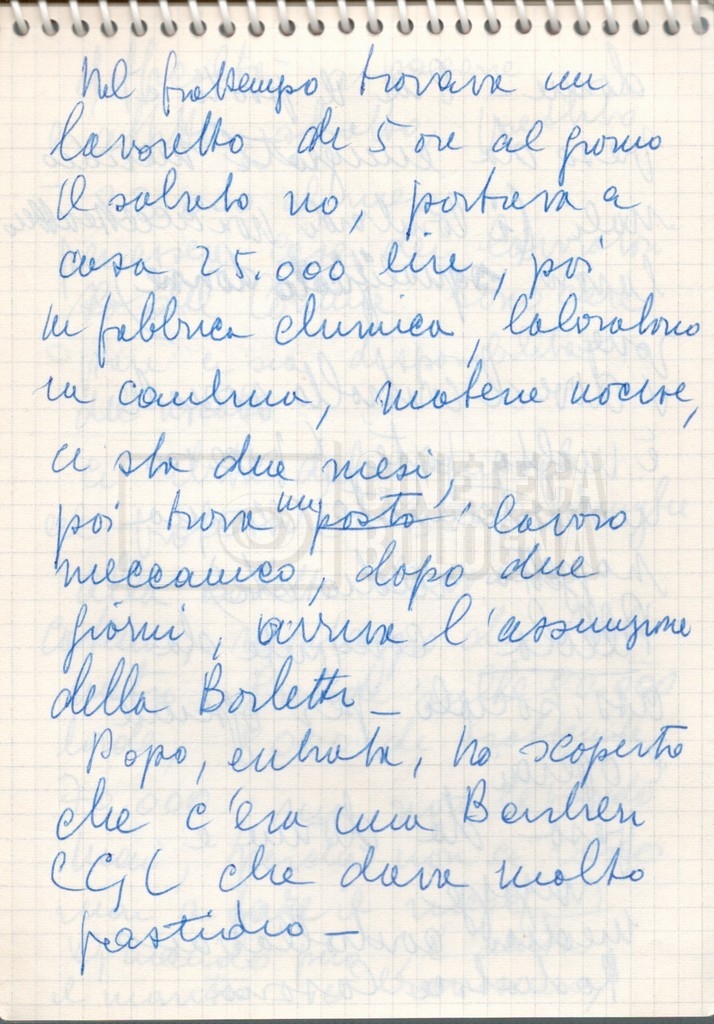 Nel frattempo trovava un
lavoretto di 5 ore al giorno
il sabato no, portava a
casa 25.000 lire, poi
in fabbrica chimica, laboratorio
in cantina, materie nocive,
ci sta due mesi,
poi trova un posto, lavoro
meccanico, dopo due
giorni, arriva l'assunzione
della Borletti_
Dopo, entrata, ho scoperto
che c'era una Barbieri
CGIL che dava molto
fastidio_
CINETECA
BOLOGNA